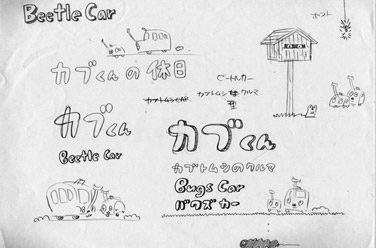 Beetle Car
ポスト
カブくんの休日
ビートルカー
カブトムシ型クルマ
カブくん
カブくん
Beetle Car
カブトムシのクルマ
Bugs Car
バグズカー